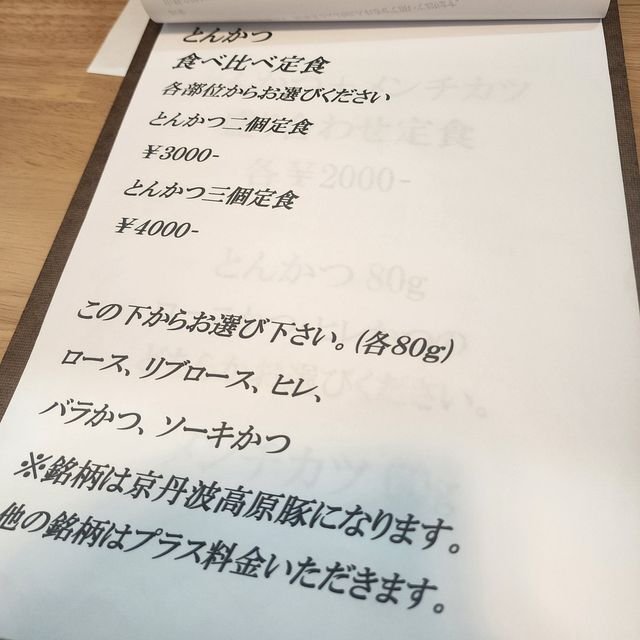 とんかつ
食べ比べ定食
各部位からお選びください
とんかつ二個定食
¥3000-
とんかつ三個定食
¥4000-
この下からお選び下さい。(各80g)
ロース、リブロース、ヒレ、
バラかつ、ソーキかつ
※銘柄は京丹波高原豚になります。
他の銘柄はプラス料金いただきます。